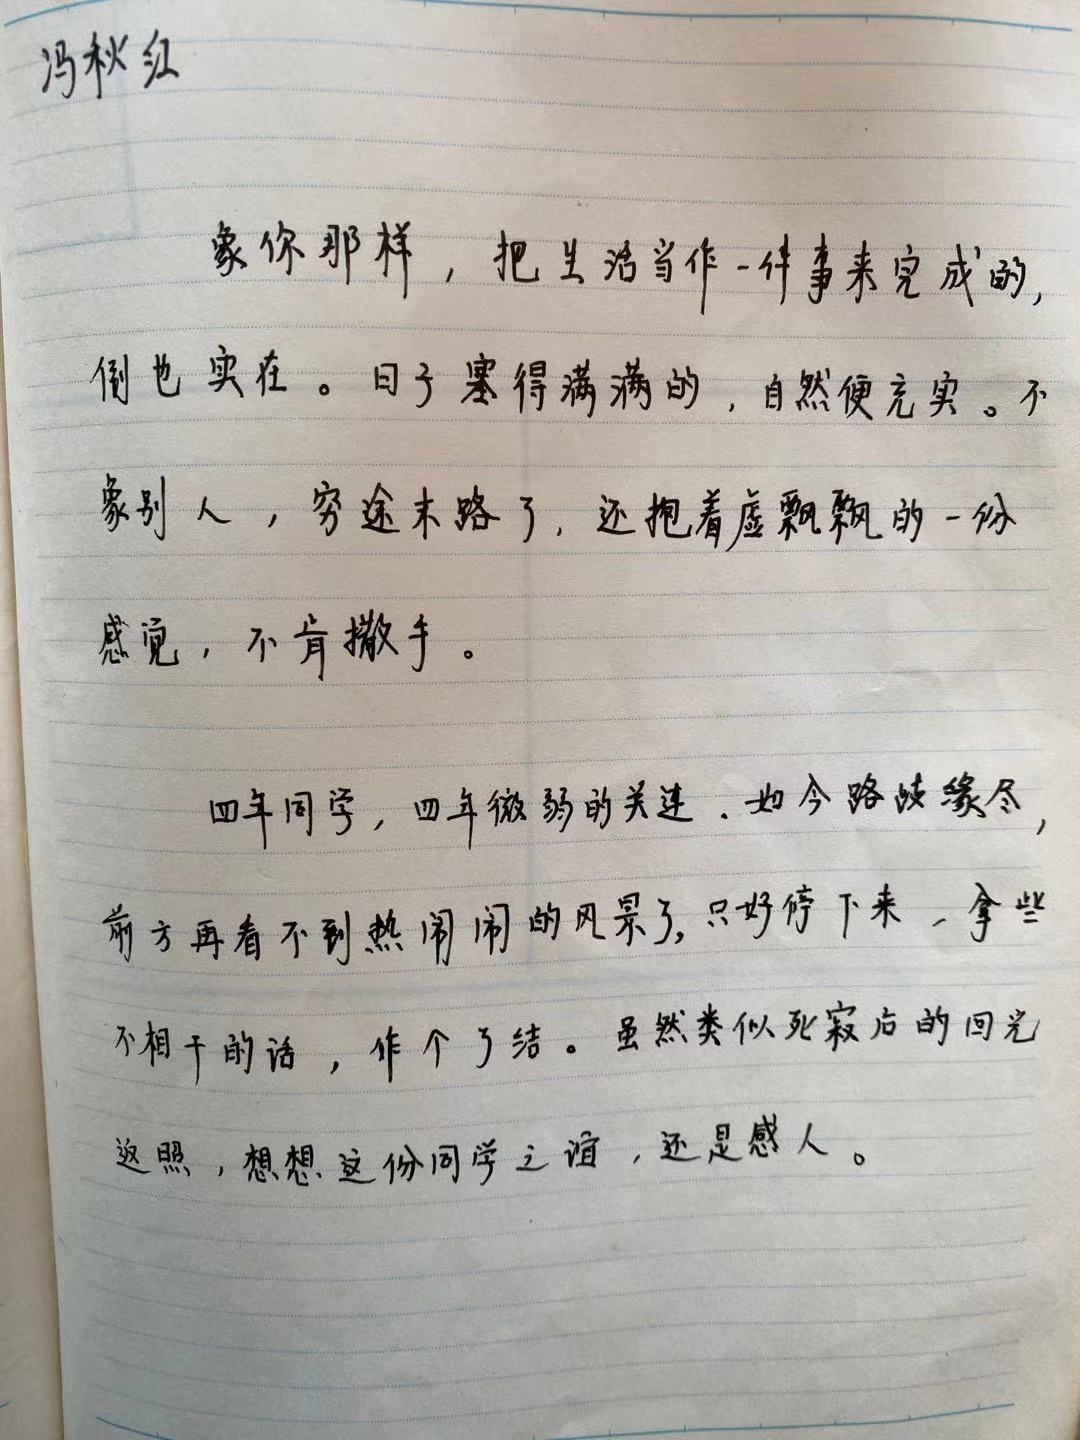 冯秋红
象你那样，把生活当作一件事来完成的，
倒也实在。日子塞得满满的，自然便充实。不
象别人，穷途末路了，还抱着虚飘飘的一份
感觉，不肯撒手。
四年同学，四年微弱的关连．如今路歧缘尽，
前方再看不到热闹闹的风景了，只好停下来、拿些
不相干的话，作个了结。虽然类似死寂后的回光
返照，想想这份同学之谊，还是感人。